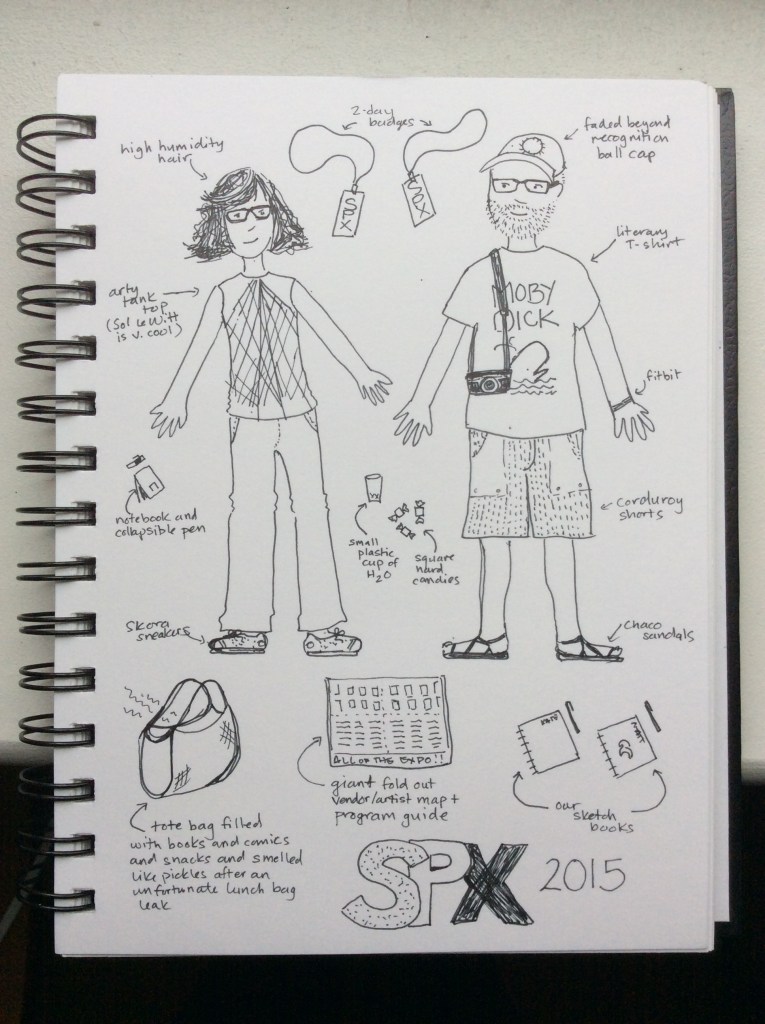 2-day
badges
high humidity
hair
SPX
SPX
faded beyond
recognition
ball cap
literary
T-shirt
arty
tank
top
(Sol LeWitt
is v. cool)
MOBY
DICK
fitbit
notebook and
collapsible pen
small
plastic
cup of
H2O
square
hard
candies
corduroy
shorts
Skora
sneakers
chaco
sandals
ALL OF THE EXPO!!
giant fold out
vendor/artist map +
program guide
KATE
our
sketch
books
tote bag filled
with books and comics
and snacks and smelled
like pickles after an
unfortunate lunch bag
leak
SPX 2015